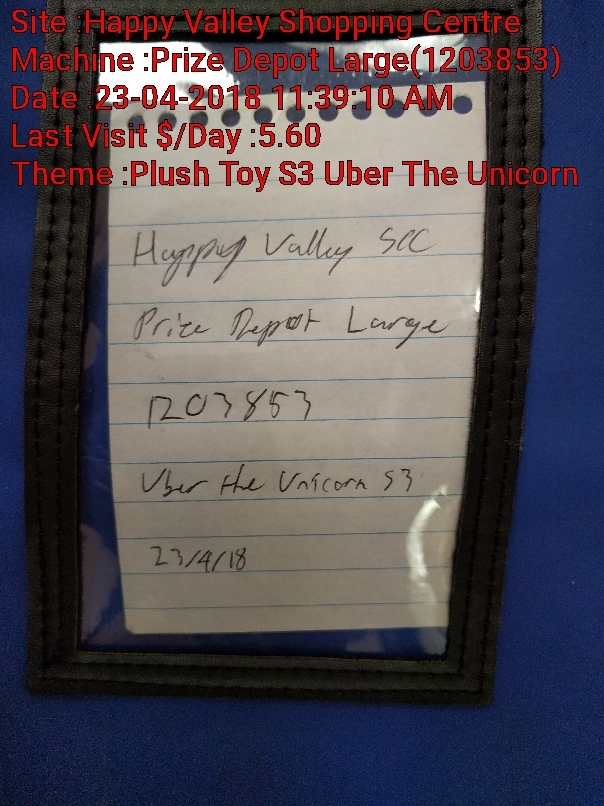 Site :Happy Valley Shopping Centre
Machine :Prize Depot Large(1203853)
Date :23-04-2018 11:39:10 AM
Last Visit $/Day :5.60
Theme :Plush Toy S3 Uber The Unicorn
Happy Valley SCC
Prize Depot Large
1203853
Uber the Unicorn S3
23/4/18